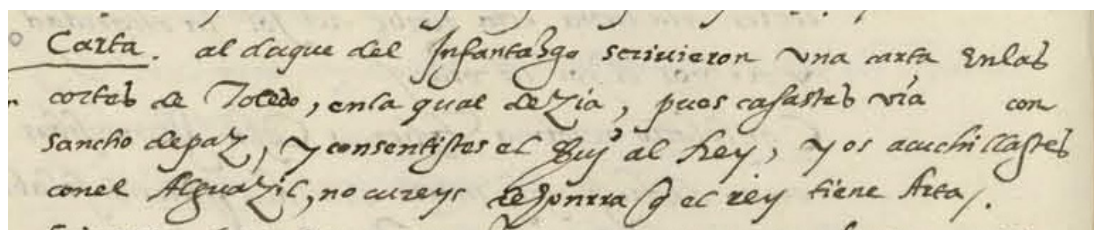 Carta. al duque del Infantazgo scriuieron vna carta Enlas
cortes de Toledo, enla qual dezia, pues casastes vra con
sancho depaz, y consentistes el al Rey, y os acuchillastes
conel Alguazil, no cureys de honrra q el rey tiene Arta/.